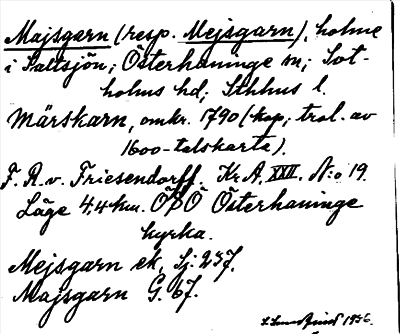 Majsgarn (resp. Mejsgarn), holme
i Saltsjön; Österhaninge sn; Sot-
holms hd; Sthlms l.
Märskarn, omkr. 1790 (kop; trol. av
1600-talskarta).
F. R. v. Friesendorff. Kr A. XXII. N:o 19.
Läge 4,4 km. OSO Österhaninge
kyrka.
Mejsgarn ek, Sj: 237.
Majsgarn G. 67.
1936.